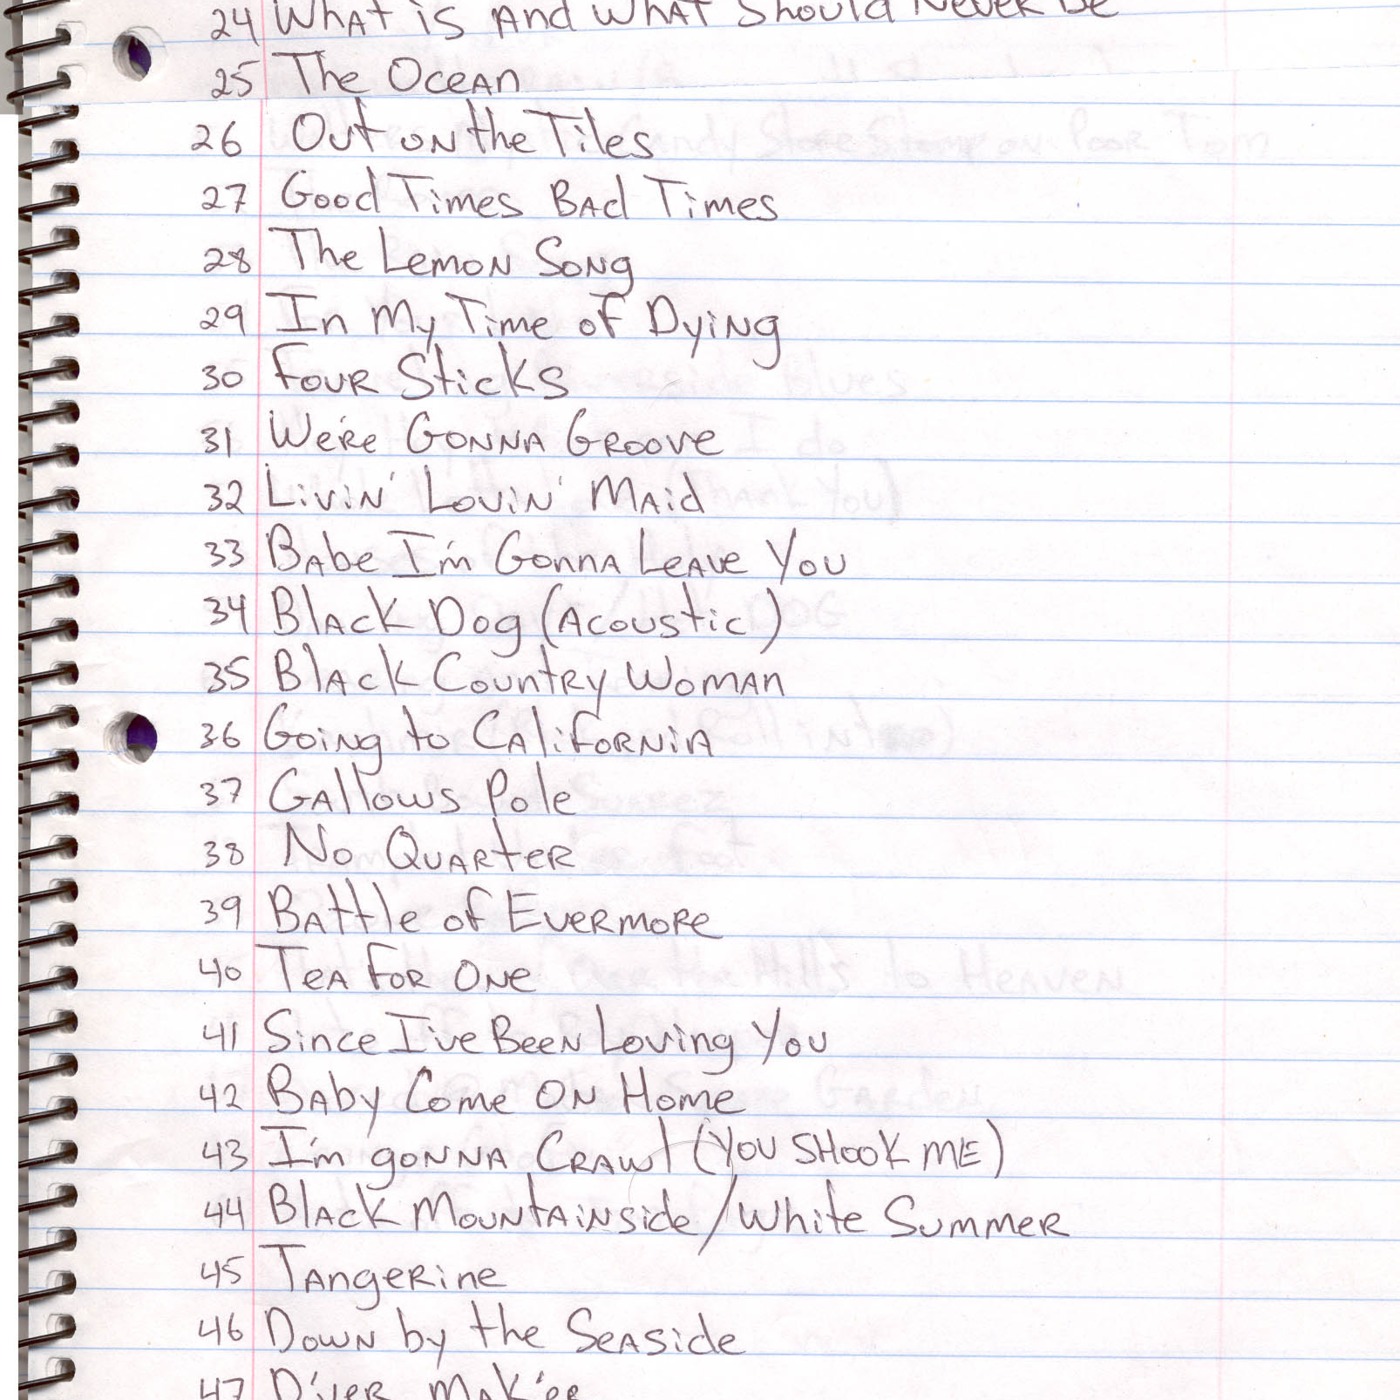 24 What is And What Should Never Be
25 The Ocean
26 Out on the Tiles
27 Good Times Bad Times
28 The Lemon Song
29 In My Time of Dying
30 Four Sticks
31 We're Gonna Groove
32 Livin' Lovin' Maid
33 Babe I'm Gonna Leave You
34 Black Dog (Acoustic)
35 Black Country Woman
36 Going to California
37 Gallows Pole
38 No Quarter
39 Battle of Evermore
40 Tea for One
41 Since I've Been Loving You
42 Baby Come On Home
43 I'm gonna Crawl (You Shook Me)
44 Black Mountainside/White Summer
45 Tangerine
46 Down by the Seaside
47 D'yer Mak'er